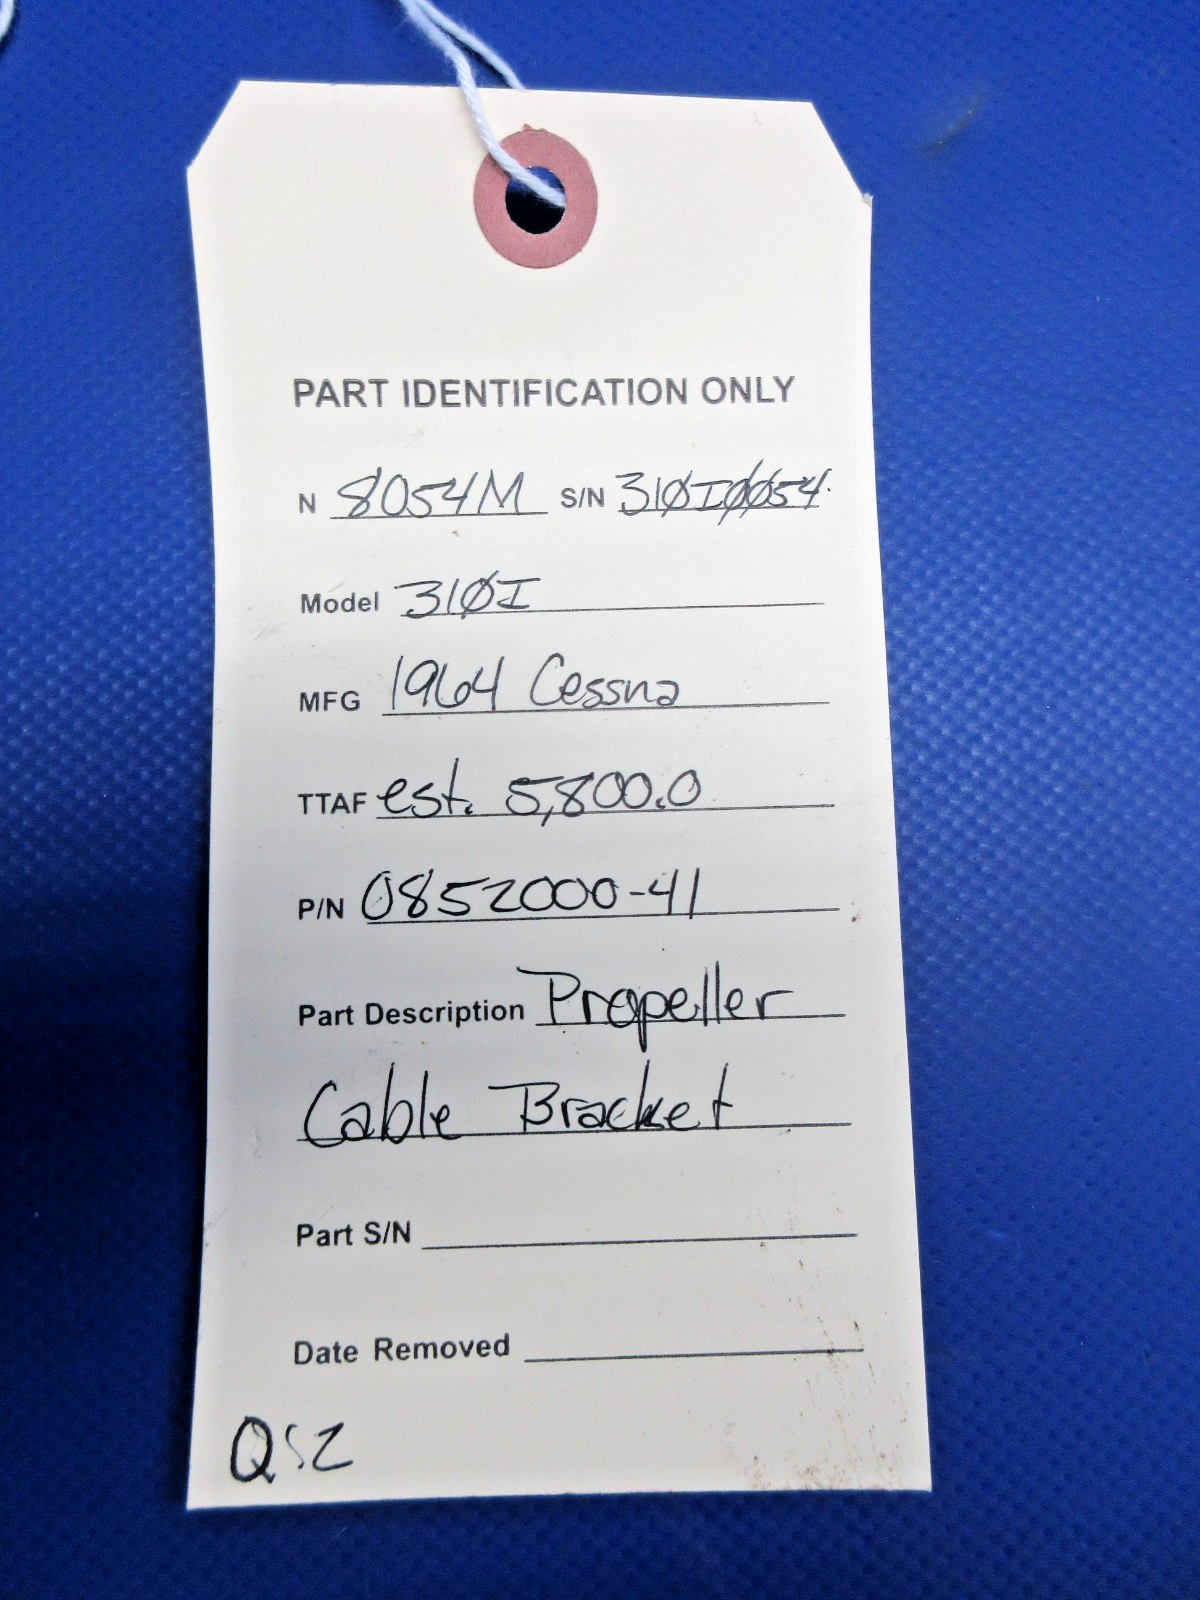 PART IDENTIFICATION ONLY
N 8054M S/N 310I0054
Model 310I
MFG 1964 Cessna
TTAF est. 5,800.0
P/N 0852000-41
Part Description Propeller
Cable Bracket
Part S/N
Date Removed